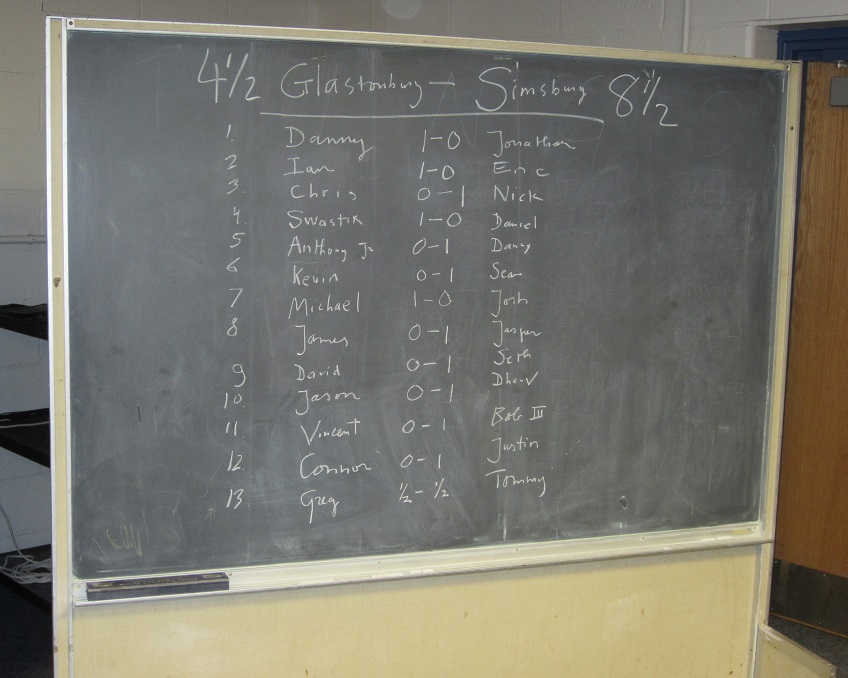 4 1/2 Glastonbury - Simsbury 8 1/2
1. Danny 1-0 Jonathan
2 Ian 1-0 Eric
3. Chris 0-1 Nick
4. Swastik 1-0 Daniel
5 Anthony Jr 0-1 Danny
6 Kevin 0-1 Sean
7 Michael 1-0 Josh
8 James 0-1 Jasper
9 David 0-1 Seth
10. Jason 0-1 Dhruv
11. Vincent 0-1 Bob III
12. Connor 0-1 Justin
13. Greg 1/2-1/2 Tommy